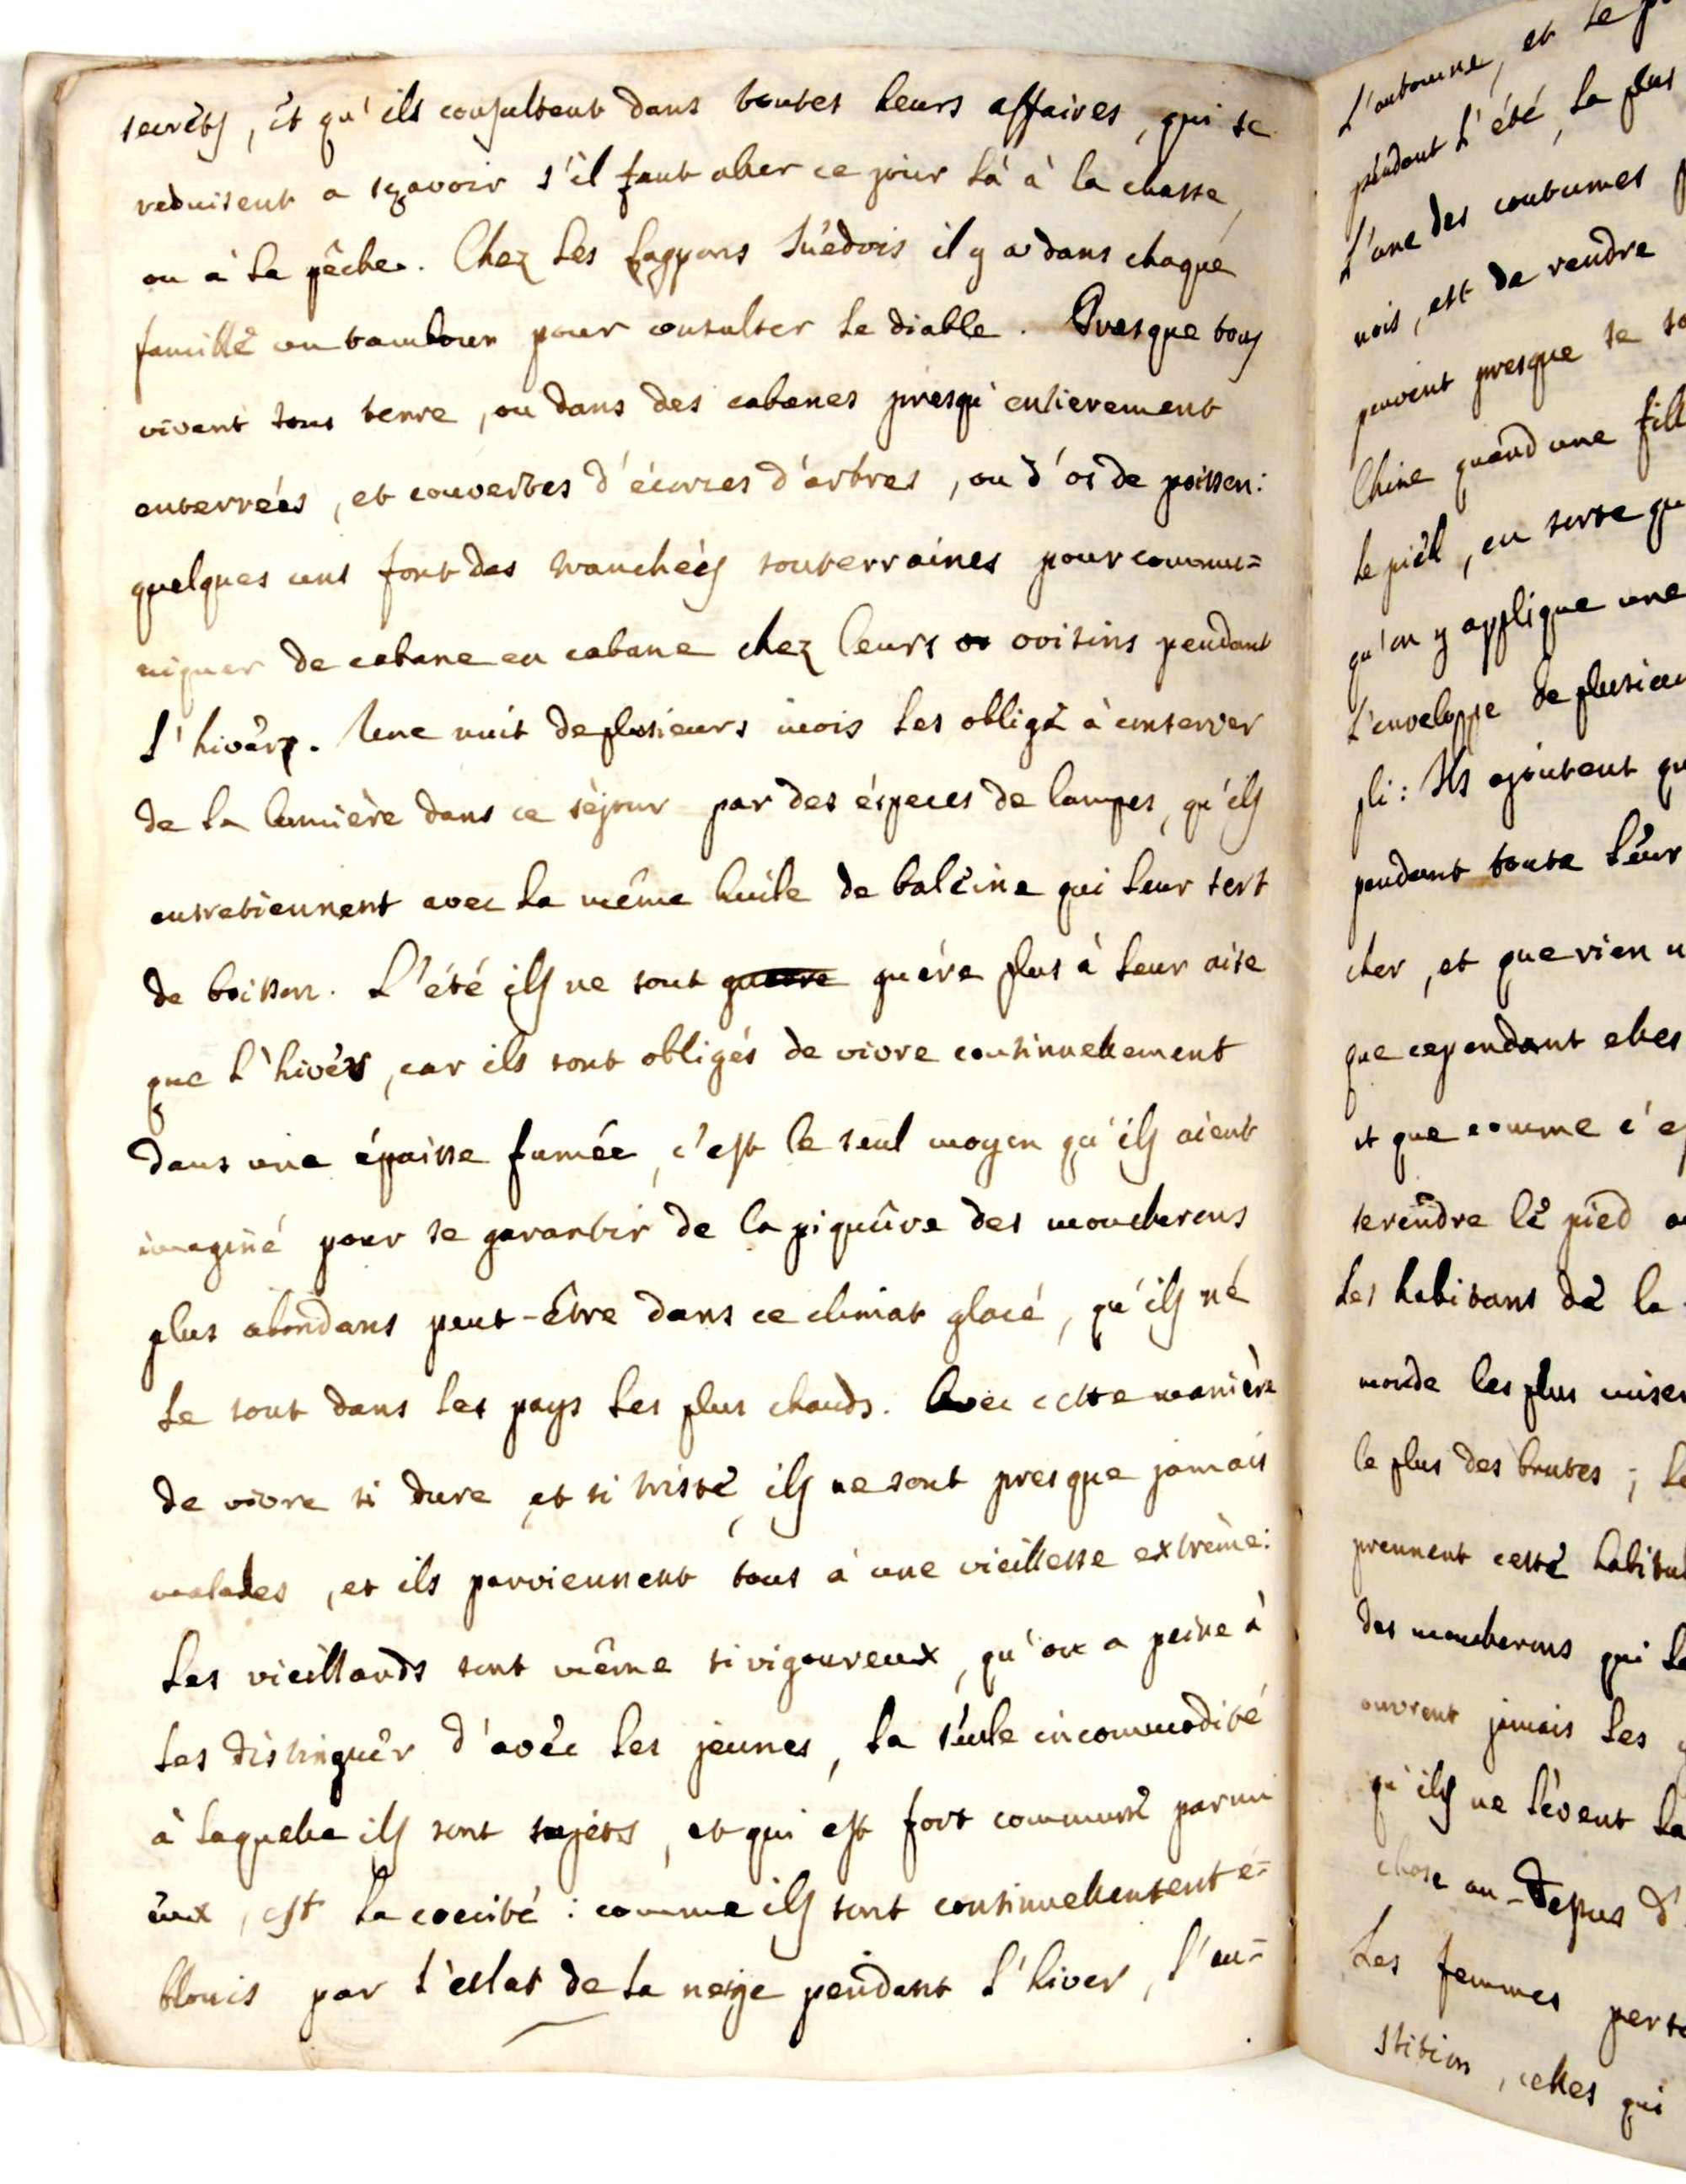 secrets, et qu'ils consultent dans toutes leurs affaires, qui se
reduisent a sçavoir s'il faut aller ce jour là à la chasse,
ou à la pêche. Chez les Lappons Suédois il y a dans chaque
famille un tambour pour consulter le diable. Presque tous
vivent sous terre, ou dans des cabanes presqu'entierement
enterrées, et couvertes d'écorces d'arbres, ou d'os de poisson:
quelques uns font des tranchées souterraines pour commu=
niquer de cabane en cabane chez leurs voisins pendant
l'hivèr. Une nuit de plusieurs mois les oblige à conserver
de la lumière dans ce séjour par des éspeces de lampes, qu'ils
entretiennent avec la même huile de baleine qui leur sert
de boisson. L'été ils ne sont guere guére plus à leur aise
que l'hivér, car ils sont obligés de vivre continuellement
dans une épaisse fumée, c'est le seul moyen qu'ils aient
imaginé pour se garantir de la piquûre des moucherons
plus abondans peut-être dans ce climat glacé, qu'ils ne
le sont dans les pays les plus chauds. Avec cette manière
de vivre si dure, et si triste, ils ne sont presque jamais
malades, et ils parviennent tous à une vieillesse extrème:
les vieillards sont même si vigoureux, qu'on a peine à
les distinguèr d'avèc les jeunes, la seule incommodité
à laquelle ils sont sujets, et qui est fort commune parmi
eux, est la coecité: comme ils sont continuellentent é=
blouis par l'eclat de la neige pendant l'hiver, l'au=
L'automne, et le
pendant l'été, la plus
L'une des coutumes
nois, est de rendre
peuvent presque se
Chine quand une fill
le piéd, en sorte qu
qu'on y applique une
L'enveloppe de plusieu
pli: Ils ajoutent qu
pendant toute leur
cher, et que rien n
que cependant elles
et que comme c'es
serendre le pied
Les habitans de la
monde les plus miser
le plus des brutes; le
prennent cette habitu
des moucherons qui le
ouvrent jamais les
qu'ils ne lèvent la
chose au-dessus d'
Les femmes
stition, celles qui